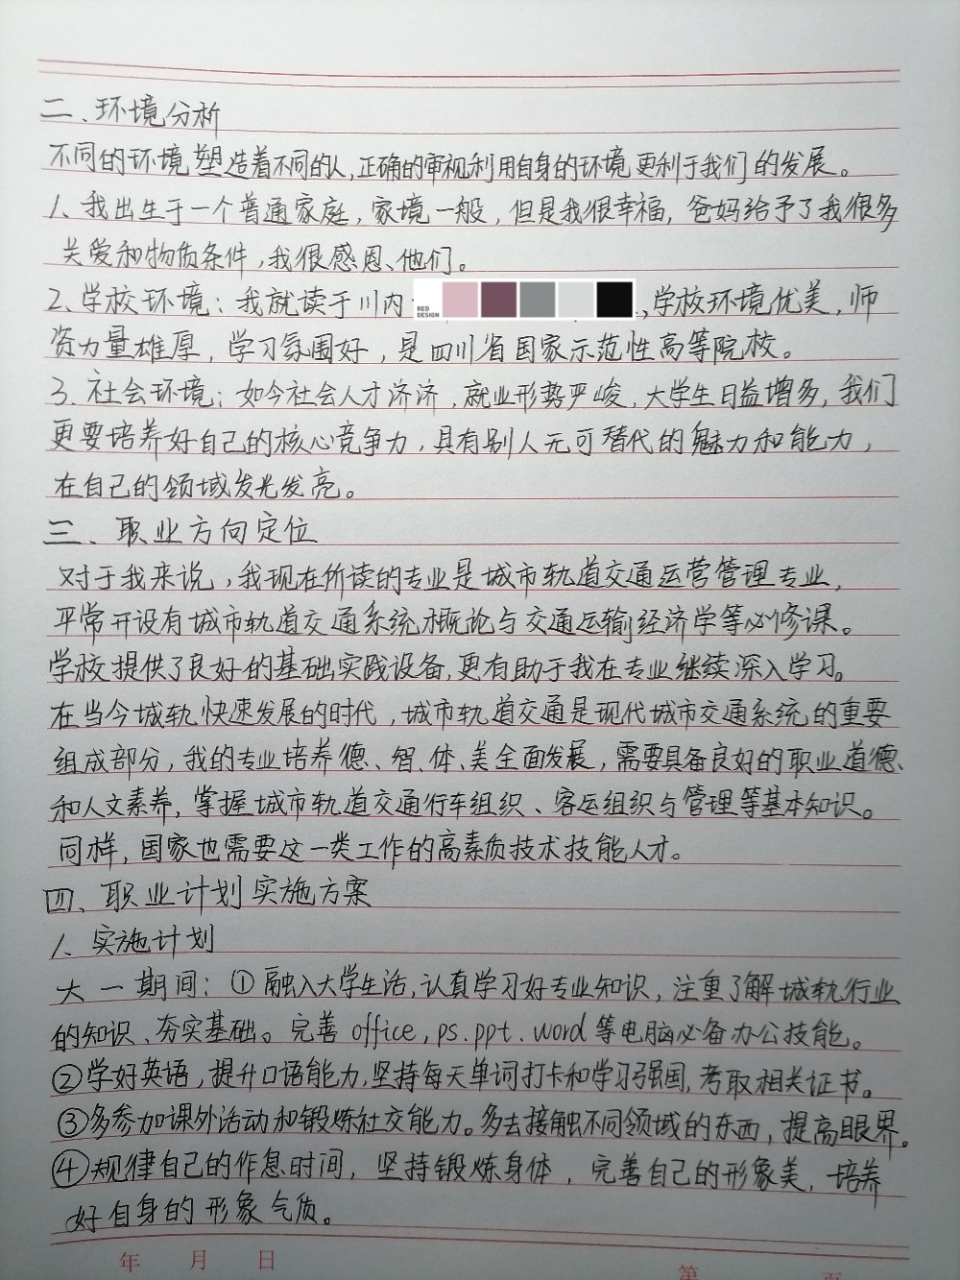 二、环境分析
不同的环境塑造着不同的人,正确的审视利用自身的环境更利于我们的发展。
1、我出生于一个普通家庭,家境一般,但是我很幸福,爸妈给予了我很多
关爱和物质条件,我很感恩他们。
2、学校环境:我就读于川内 RED DESIGN ,学校环境优美,师
资力量雄厚,学习氛围好,是四川省国家示范性高等院校。
3、社会环境:如今社会人才济济,就业形势严峻,大学生日益增多,我们
更要培养好自己的核心竞争力,具有别人无可替代的魅力和能力,
在自己的领域发光发亮。
三、职业方向定位
对于我来说,我现在所读的专业是城市轨道交通运营管理专业,
平常开设有城市轨道交通系统概论与交通运输经济学等必修课。
学校提供了良好的基础实践设备,更有助于我在专业继续深入学习。
在当今城轨快速发展的时代,城市轨道交通是现代城市交通系统的重要
组成部分,我的专业培养德、智、体、美全面发展,需要具备良好的职业道德
和人文素养,掌握城市轨道交通行车组织、客运组织与管理等基本知识。
同样,国家也需要这一类工作的高素质技术技能人才。
四、职业计划实施方案
1、实施计划
大一期间:①融入大学生活,认真学习好专业知识,注重了解城轨行业
的知识、夯实基础。完善office,ps.ppt.word等电脑必备办公技能。
②学好英语,提升口语能力,坚持每天单词打卡和学习强国,考取相关证书。
③多参加课外活动和锻炼社交能力。多去接触不同领域的东西,提高眼界。
④规律自己的作息时间,坚持锻炼身体,完善自己的形象美,培养
好自身的形象气质。
年 月 日 第 页